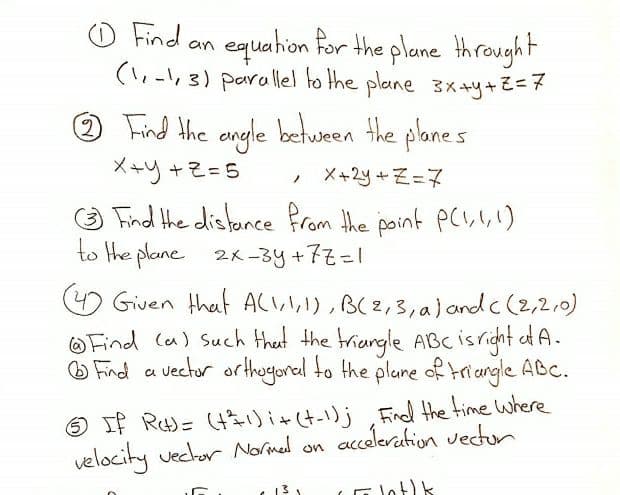 ① Find an equation for the plane throught
(1,-1,3) parallel to the plane 3x+y+z=7
② Find the angle between the planes
x+y+z=5 , x+2y+z=7
③ Find the distance from the point P(1,1,1)
to the plane 2x-3y+7z=1
④ Given that A(1,1,1), B(2,3,a) and c(2,2,0)
ⓐ Find (a) such that the triangle ABC is right at A.
ⓑ Find a vector orthogonal to the plane of triangle ABC.
⑤ If R(t)= (t²+1)i+(t-1)j, Find the time where
velocity vector Normal on acceleration vector